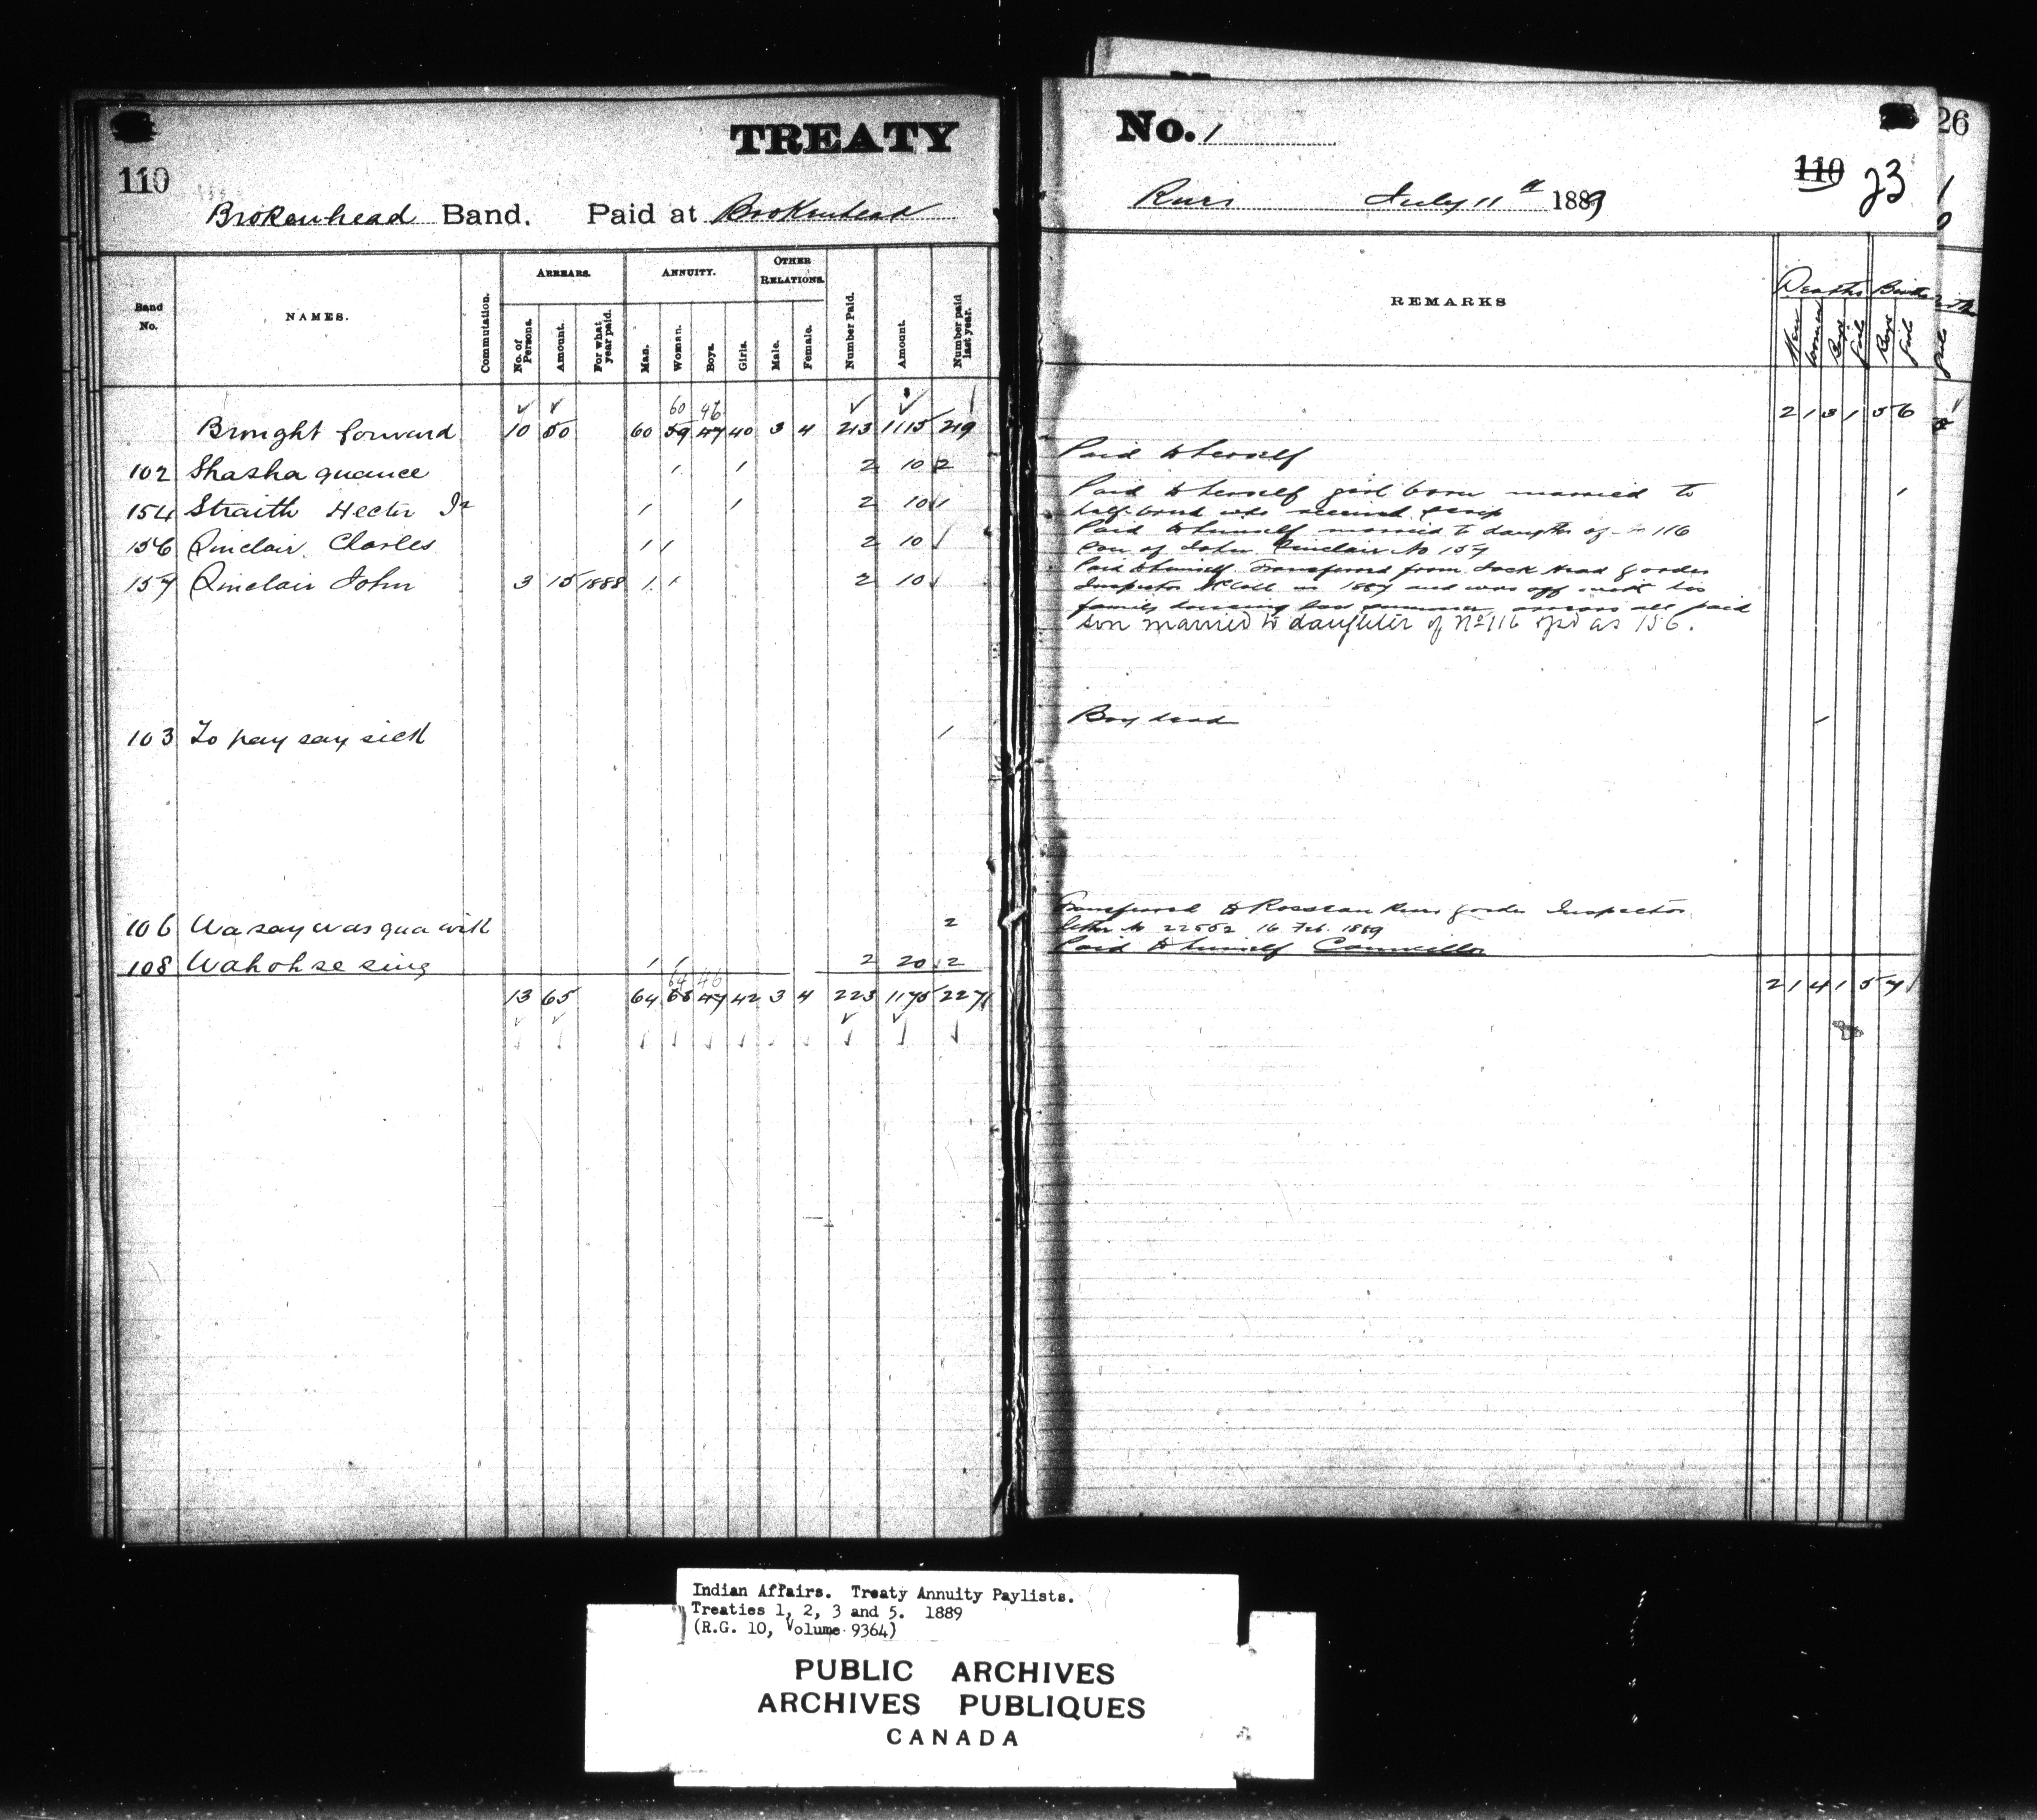 TREATY
110
Brokenhead Band. Paid at Brokenhead
Band No.
NAMES.
Commutation.
ARREARS.
No. of Persons.
Amount.
For what year paid.
ANNUITY.
Man.
Woman.
Boys.
Girls.
OTHER RELATIONS.
Male.
Female.
Number Paid.
Amount.
Number paid last year.
60 46
Brought forward 10 50 60 59 47 40 3 4 213 1115 219
102 Shasha quance 1 1 2 10 2
154 Straith Hector Jr 1 1 2 10 1
156 Sinclair Charles 1 1 2 10
157 Sinclair John 3 15 1888 1 1 2 10
103 To pay say sick 1
106 Wa say was qua wisk 2
108 Wahoh se sing 1 1 2 20 2
64 46
13 65 64 63 47 42 3 4 223 1175 227
No. 1
26
110 23
River July 11th 1889
REMARKS
Deaths Births
Men
Women
Boys
Girls
Boys
Girls
2 1 3 1 5 6
Paid to herself
Paid to herself girl born married to 1
half-breed who received scrip
Paid to himself married to daughter of No 116
Son of John Sinclair No 157
Paid to himself Transferred from Jack Head p order
Inspector McColl in 1887 and was off with his
family last summer arrears all paid
Son married to daughter of No 116 & pd as 156.
Boy dead 1
Transferred to Rosseau River p order Inspector
letter No 22552 16 Feb. 1889
Paid to himself Councillor
2 1 4 1 5 7
Indian Affairs. Treaty Annuity Paylists.
Treaties 1, 2, 3 and 5. 1889
(R.G. 10, Volume 9364)
PUBLIC ARCHIVES
ARCHIVES PUBLIQUES
CANADA